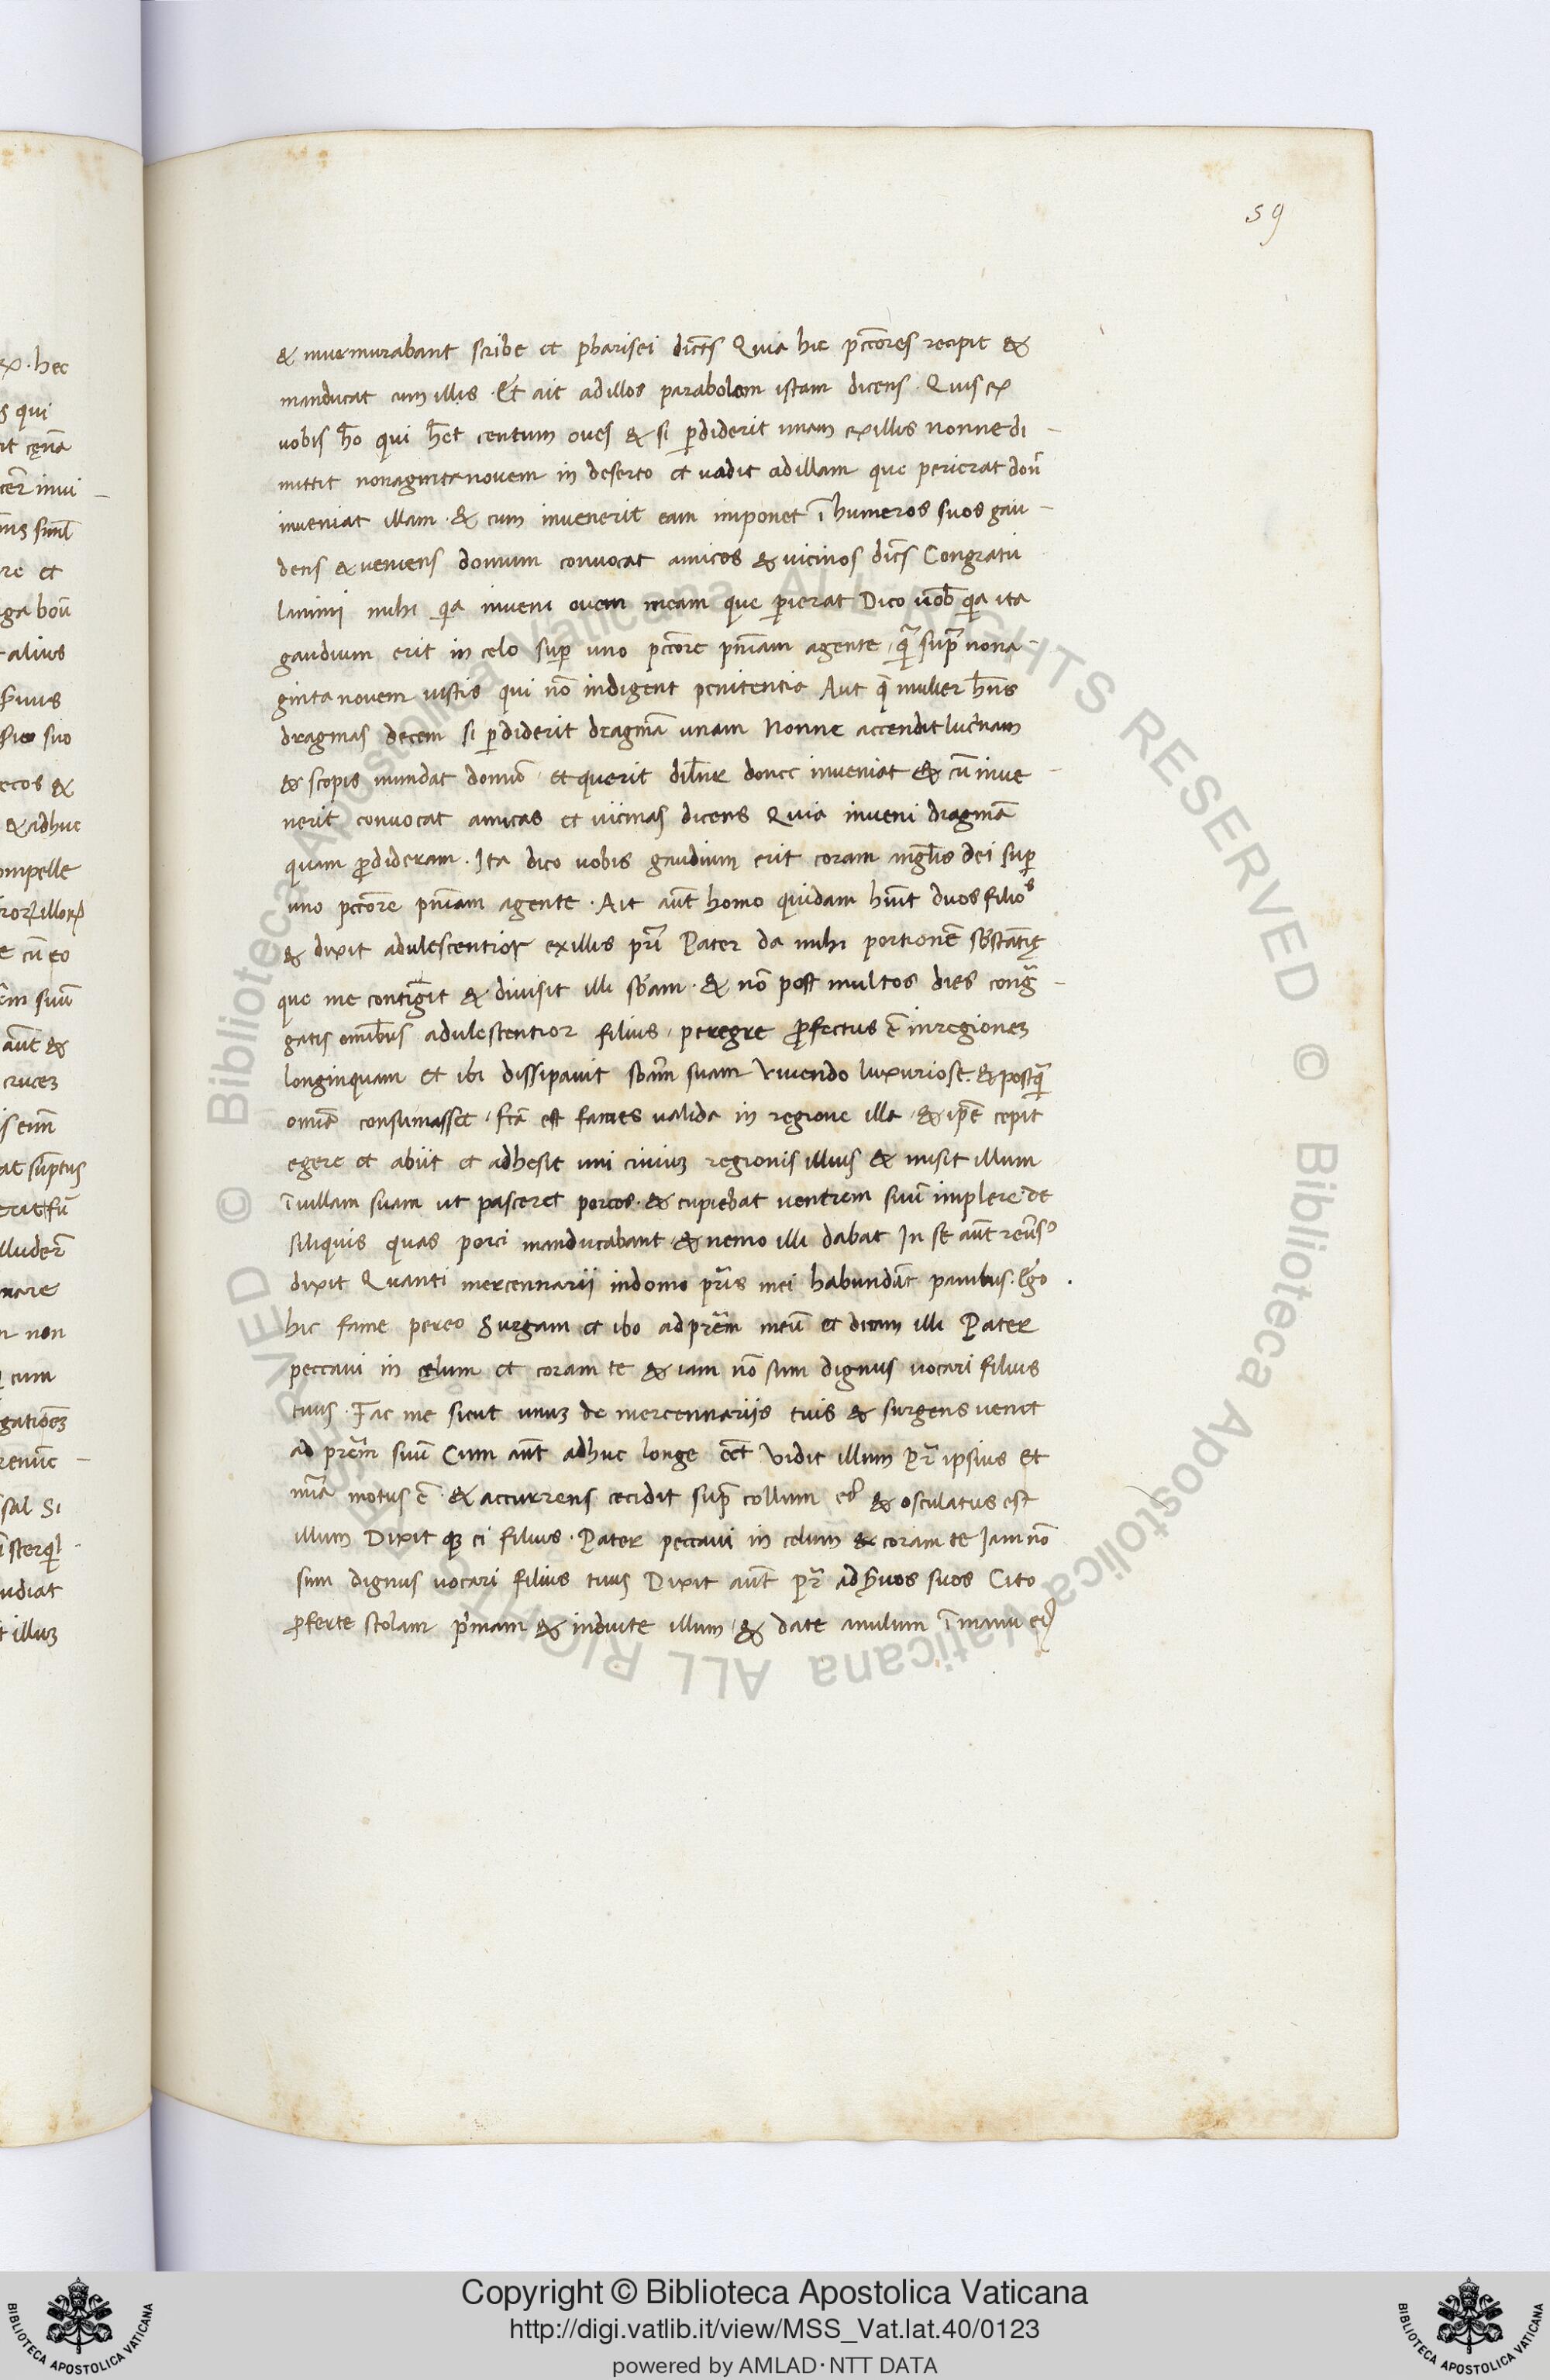 59
& murmurabant scribe et pharisei dicẽs Quia hic pccores recipit &
manducat cum illis. Et ait ad illos parabolam istam dicens. Quis ex
vobis hõ qui hẽt centum oves & si perdiderit unam ex illis nonne di-
mittit nonaginta novem in deserto et vadit ad illam que perierat donẽ
inveniat illam. & cum invenerit eam imponet ĩ humeros suos gau-
dens & veniens domum convocat amicos & vicinos dicẽs Congratu
lamini mihi qa inveni ovem meam que perierat Dico vob qa ita
gaudium erit in celo sup uno pccore pniam agente qã supra nona-
ginta novem iustis qui nõ indigent penitentia Aut q mulier hñs
dragmas decem si perdiderit dragmã unam Nonne accendit lucernam
& scopis mundat domũ et querit dilinr donec inveniat & cũ inve-
nerit convocat amicas et vicinas dicens Quia inveni dragmã
quam perdideram. Ita dico vobis gaudium erit coram anglis dei sup
uno pccore pniam agente. Ait aũt homo quidam huit duos filios
& dixit adulescentior ex illis pri Pater da mihi portionẽ sbstantię
que me contigit & divisit illi sbam. & nõ post multos dies cong-
gatis omibus adulescentior filius peregre profectus ẽ in regionem
longinquam et ibi dissipavit sbam suam vivendo luxuriose. & postqã
omia consumasset fca est fames valida in regione illa & ipse cepit
egere et abiit et adhesit uni civium regionis illius & misit illum
ĩ villam suam ut pasceret porcos. & cupiebat ventrem suũ implere de
siliquis quas porci manducabant & nemo illi dabat In se aũt revers⁹
dixit Quanti mercennarii in domo pris mei habundãt panibus. Ego
hic fame pereo Surgam et ibo ad prem meũ et dicam illi Pater
peccavi in cęlum et coram te & iam nõ sum dignus vocari filius
tuus. Fac me sicut unum de mercennariis tuis & surgens venit
ad prem suũ Cum aũt adhuc longe eet vidit illum pr ipsius et
mia motus ẽ. & accurrens cecidit supra collum ei⁹ & osculatus est
illum Dixit que ei filius. Pater peccavi in celum & coram te Iam nõ
sum dignus vocari filius tuus Dixit aũt pr ad servos suos Cito
proferte stolam primam & induite illum & date anulum ĩ manu ei⁹
Copyright © Biblioteca Apostolica Vaticana
http://digi.vatlib.it/view/MSS_Vat.lat.40/0123
powered by AMLAD·NTT DATA